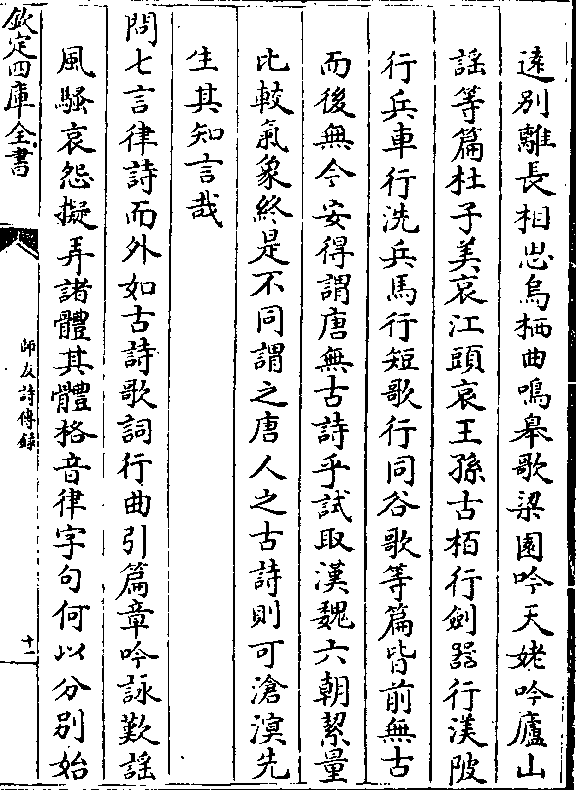 遠別離長相思烏栖曲鳴皋歌梁園吟天姥吟廬山
謡等篇杜子美哀江頭哀王孫古栢行劍器行渼陂
行兵車行洗兵馬行短歌行同谷歌等篇皆前無古
而後無今安得謂唐無古詩乎試取漢魏六朝絜量
比較氣象終是不同謂之唐人之古詩則可滄溟先
生其知言哉
問七言律詩而外如古詩歌詞行曲引篇章吟詠歎謡
風騷哀怨擬弄諸體其體格音律字句何以分别始
欽定四庫全書
師友詩傳錄
十一